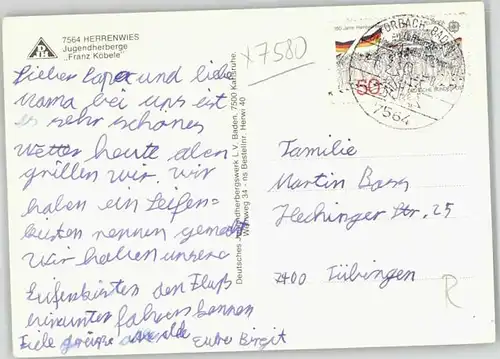 7564 HERRENWIES
Jugendherberge
„Franz Köbele"
x7580
Lieber Papa und liebe
Mama bei uns ist
es sehr schönes
Wetter heute aben
grillen wir. wir
haben ein Seifen=
kisten rennen gemacht
wir haben unsere
Seifenkisten den Fluß
herunter fahren
Viele grüße
Eure Birgit
Deutsches Jugendherbergswerk L.V. Baden, 7500 Karlsruhe,
Weinweg 34 - ns Bestellnr. Herwi 40
50
DEUTSCHE BUNDESPOST
FORBACH, BADEN
7564
Familie
Martin
Hechinger Str. 25
7400 Tübingen
R